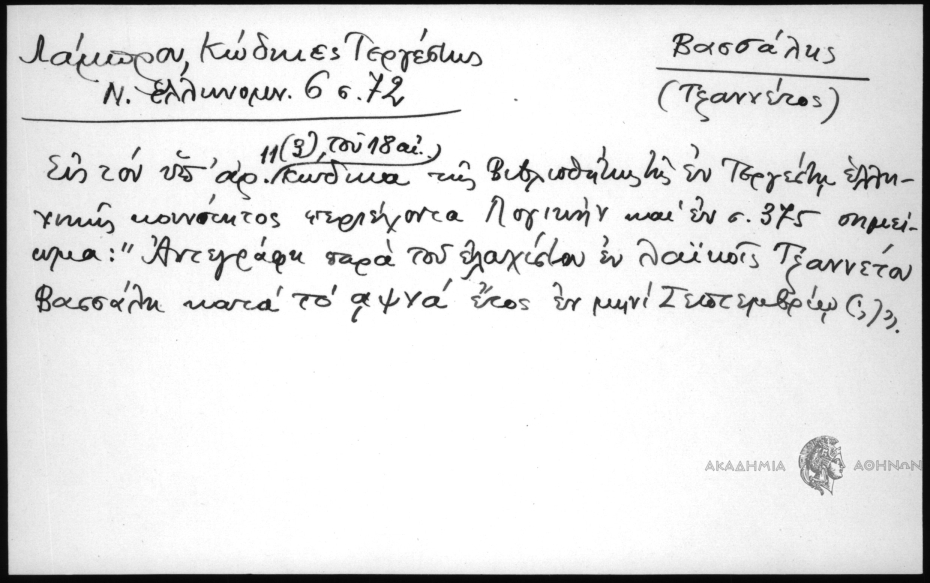 Λάμπρου, Κώδικες Τεργέστης
Ν. Ἑλληνομν. 6 σ. 72
Βασσάλης
(Τζαννέτος)
11 (3), τοῦ 18 αἰ.)
Εἰς τόν ὑπ' ἀρ. κώδικα τῆς Βιβλιοθήκης τῆς ἐν Τεργέστῃ ἑλλη-
νικῆς κοινότητος περιέχοντα Λογικήν καί ἐν σ. 375 σημεί-
ωμα: " Ἀντεγράφη παρά τοῦ ἐλαχίστου ἐν λαϊκοῖς Τζαννέτου
Βασσάλη κατά τό αψνά ἔτος ἐν μηνί Σεπτεμβρίῳ (;)».
ΑΚΑΔΗΜΙΑ ΑΘΗΝΩΝ